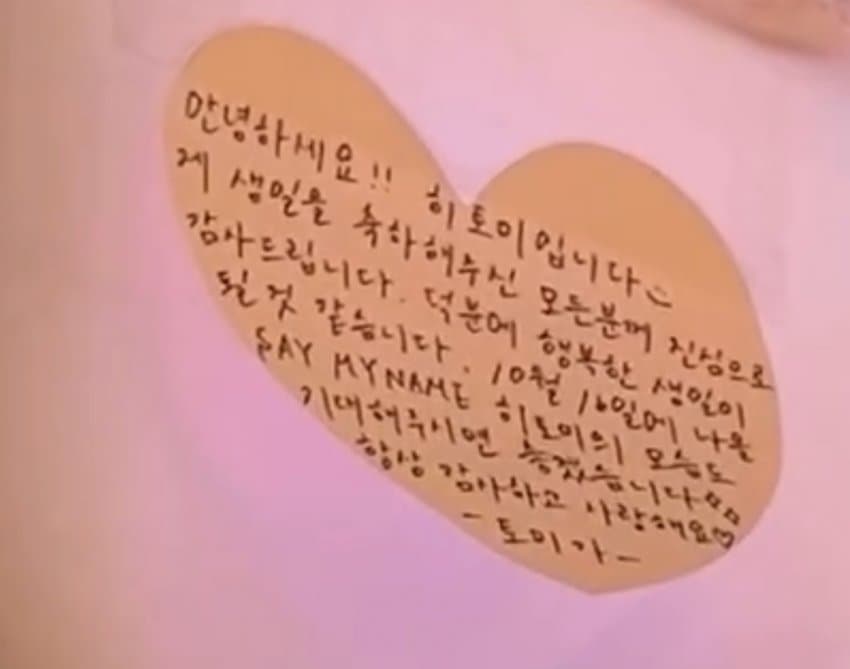 안녕하세요!! 히토미입니다
제 생일을 축하해주신 모든분께 진심으로
감사드립니다. 덕분에 행복한 생일이
될 것 같습니다. 10월 16일에 나올
SAY MYNAME 히토미의 모습도
기대해주시면 좋겠습니다
항상 감사하고 사랑해요♡
- 토미가 -